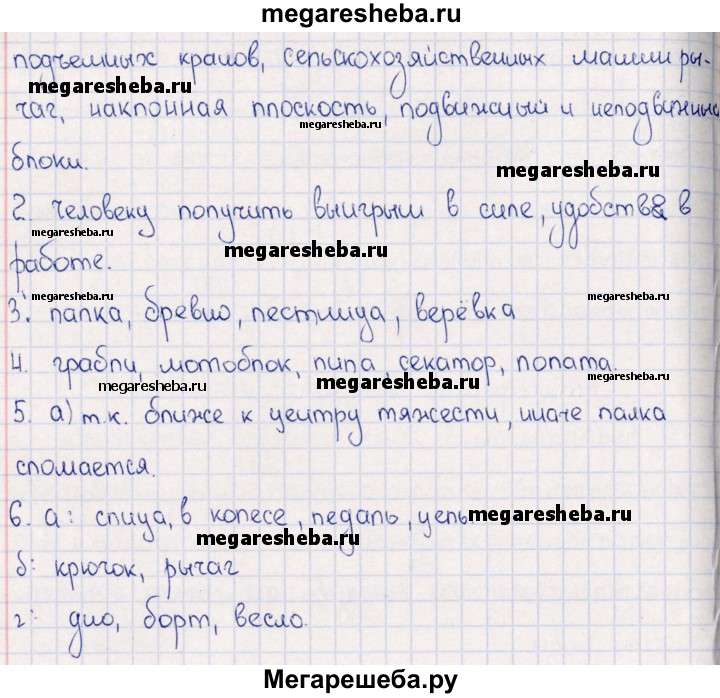 megaresheba.ru
подъемных кранов, сельскохозяйственных машин ры-
megaresheba.ru
megaresheba.ru
чаг, наклонная плоскость, подвижный и неподвижные
megaresheba.ru
блоки.
megaresheba.ru
2. человеку получить выигрыш в силе, удобства в
megaresheba.ru
megaresheba.ru
работе.
megaresheba.ru
megaresheba.ru
3. палка, бревно, лестница, верёвка
4. грабли, мотоблок, пила, секатор, лопата.
megaresheba.ru
megaresheba.ru
megaresheba.ru
5. а) т.к. ближе к центру тяжести, иначе палка
сломается.
6. а: спица, в колесе, педаль, цепь
megaresheba.ru
megaresheba.ru
б: крючок, рычаг
г: дно, борт, весло.
Мегарешеба.ру